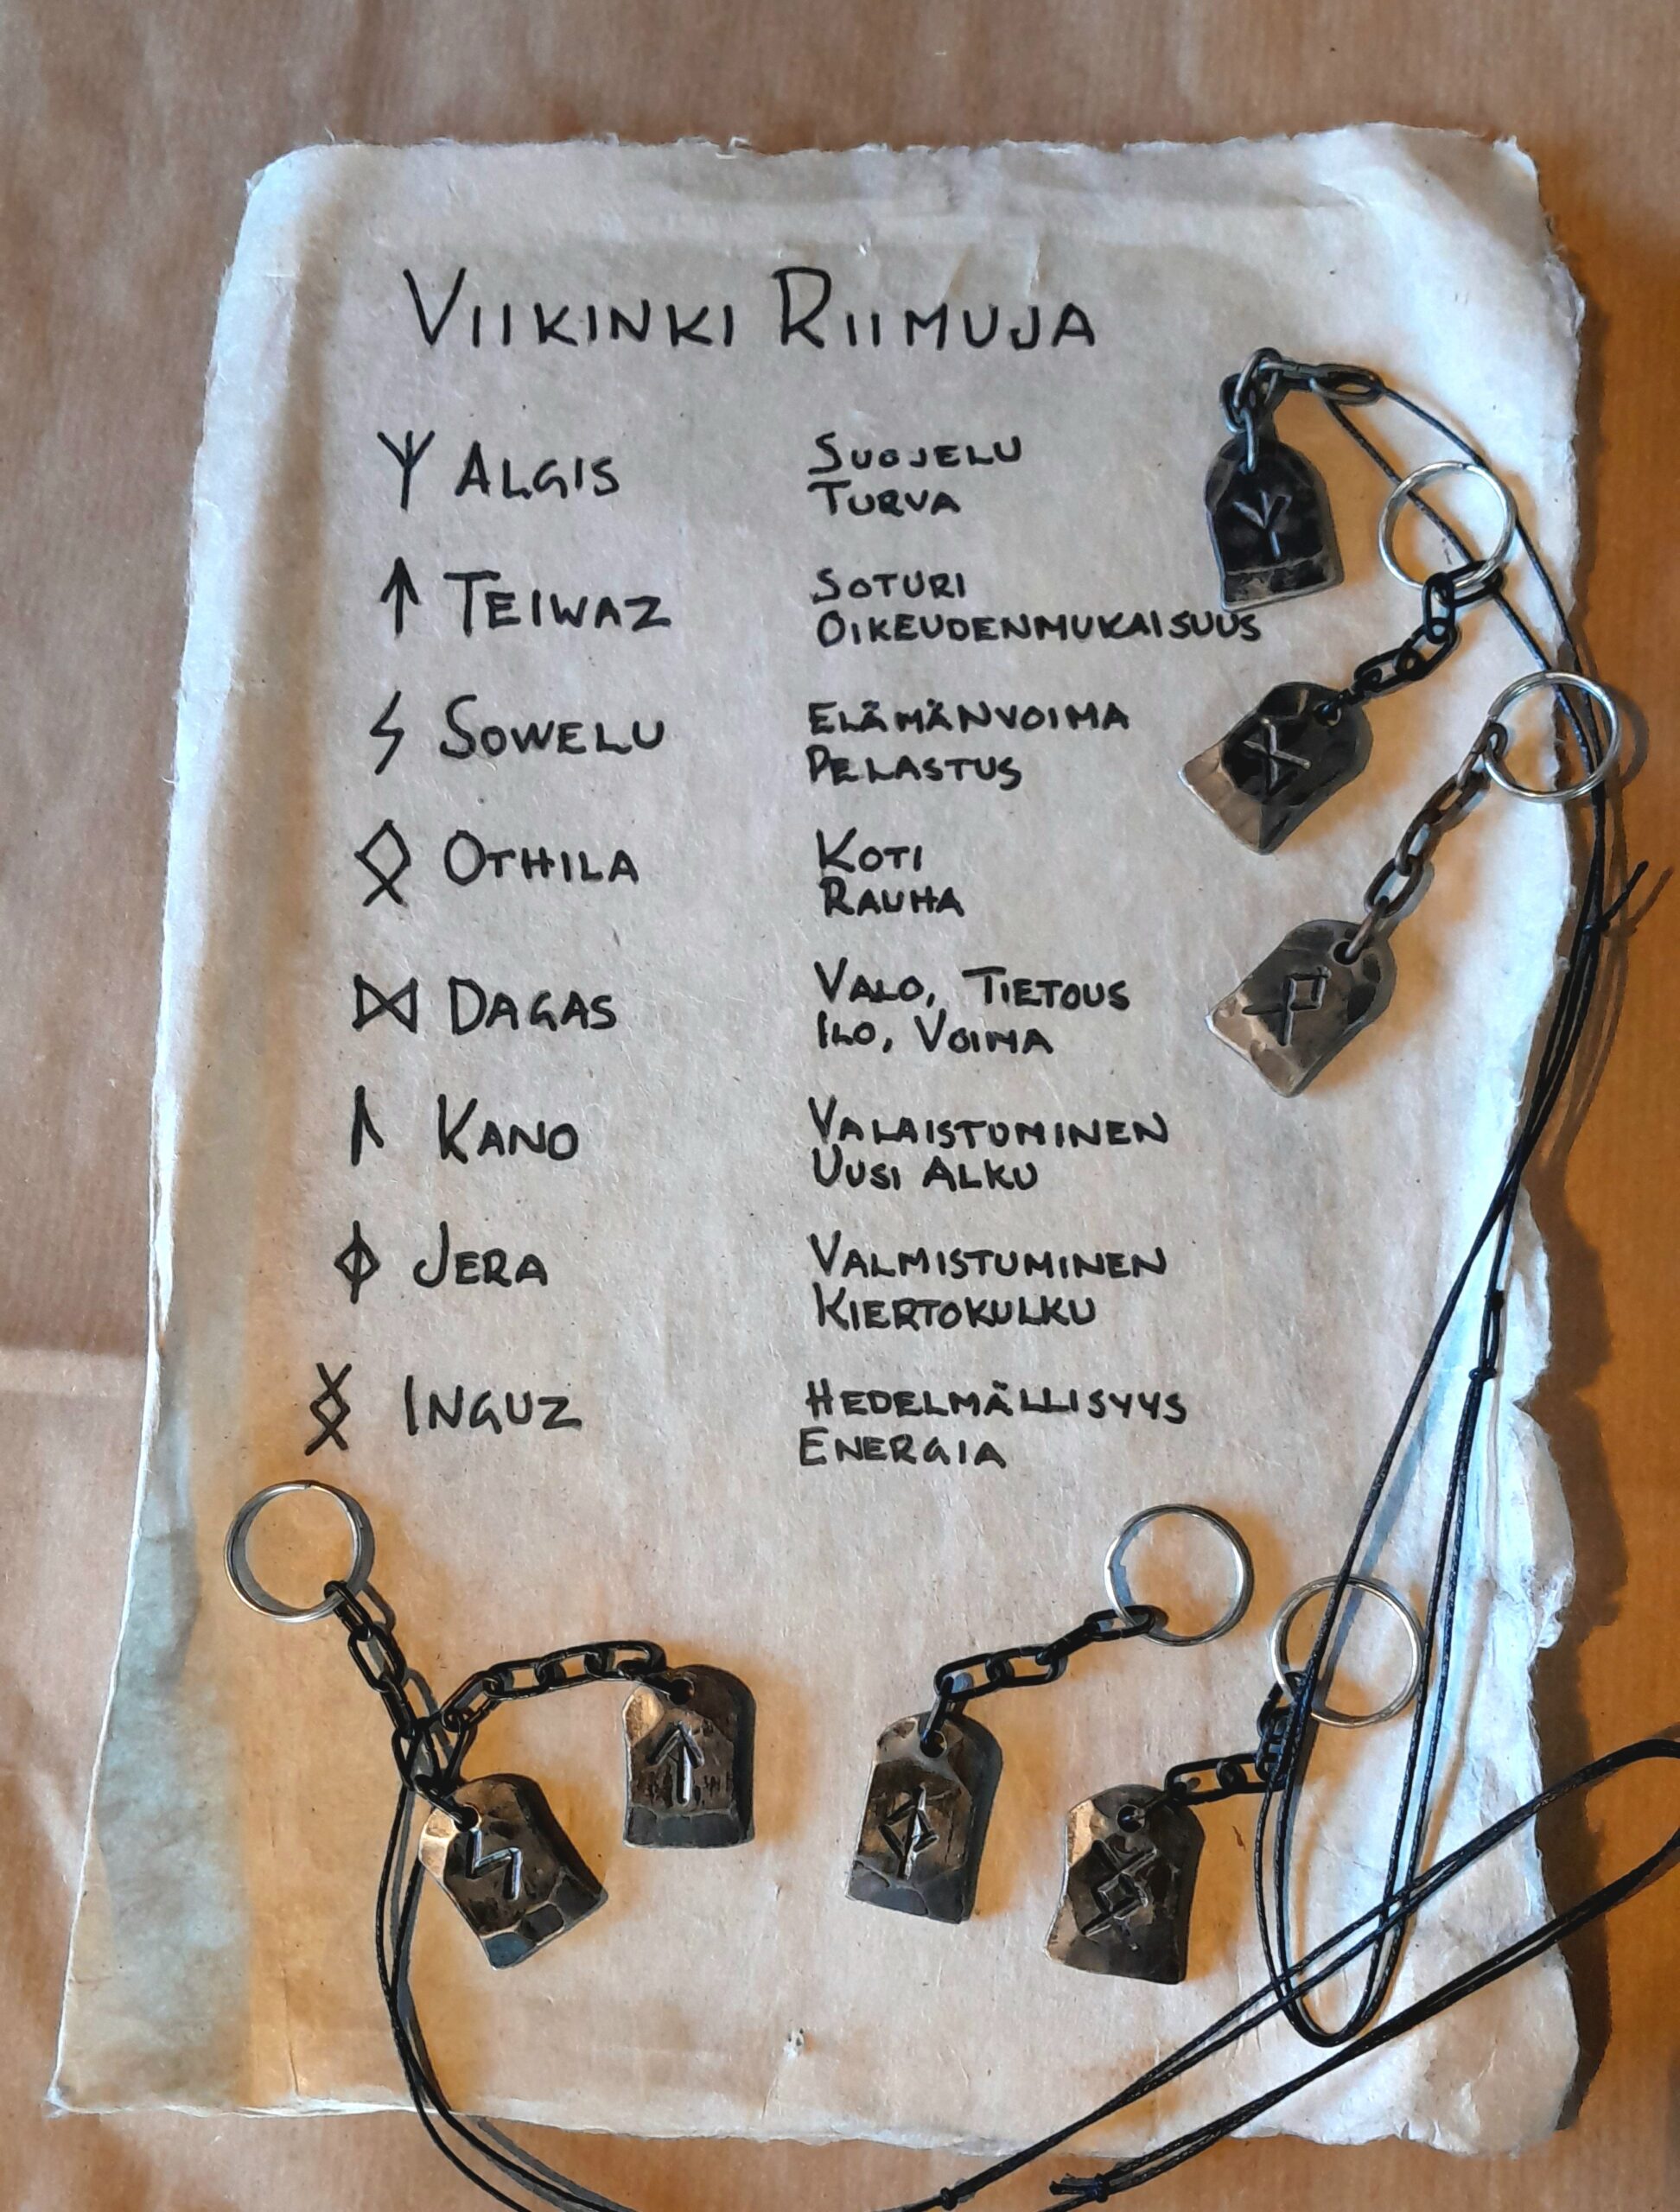 VIIKINKI RIIMUJA
ᛉ ALGIS SUOJELU
TURVA
ᛏ TEIWAZ SOTURI
OIKEUDENMUKAISUUS
ᛋ SOWELU ELÄMÄNVOIMA
PELASTUS
ᛟ OTHILA KOTI
RAUHA
ᛞ DAGAS VALO, TIETOUS
ILO, VOIMA
ᚳ KANO VALAISTUMINEN
UUSI ALKU
ᛄ JERA VALMISTUMINEN
KIERTOKULKU
ᛝ INGUZ HEDELMÄLLISYYS
ENERGIA
ᛉ
ᛟ
ᛋ
ᛏ
ᛄ
ᛝ